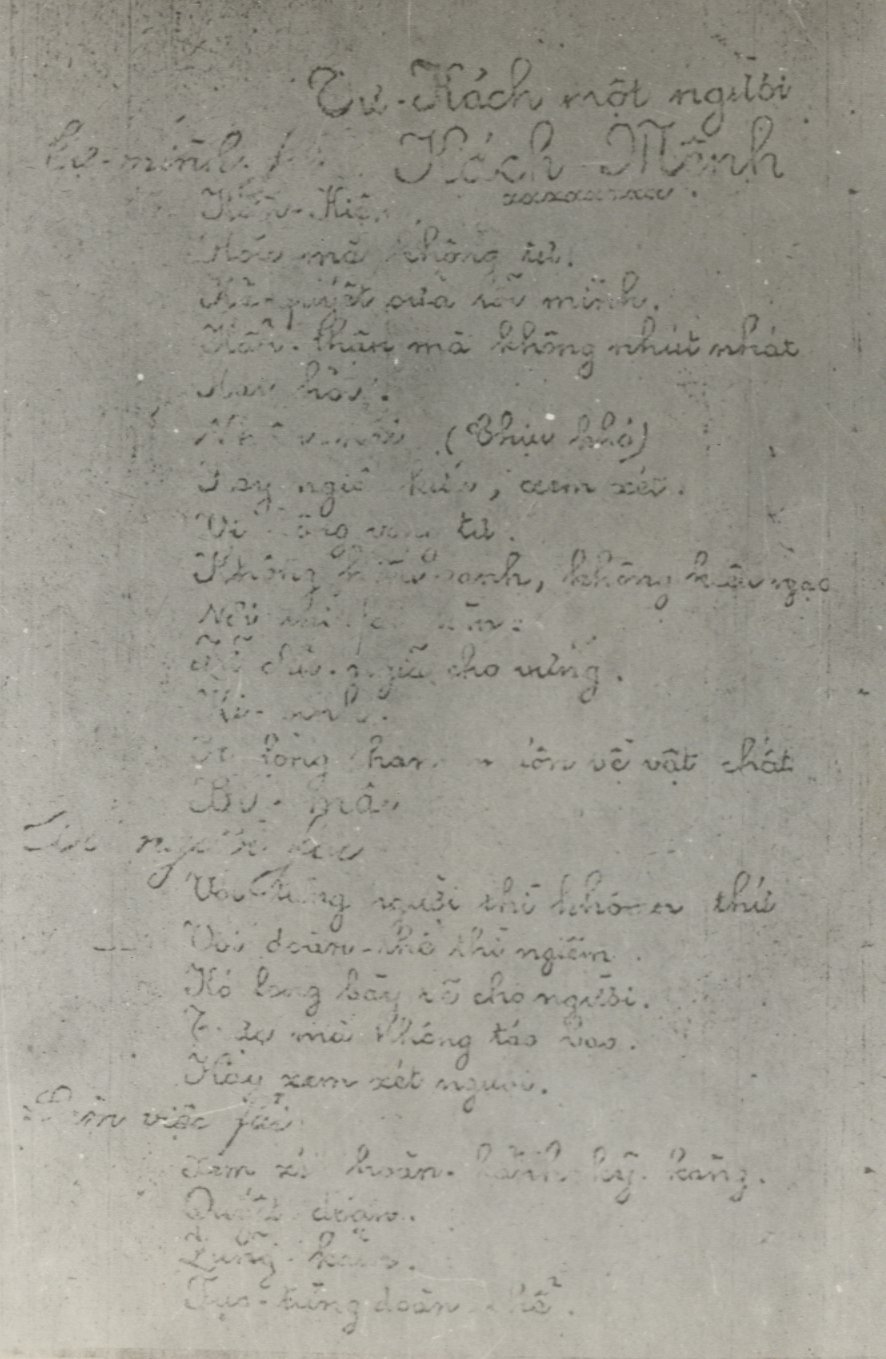 Tư-Kách một người
Tự-mình fải Kách-Mệnh
Kần-Kiệm.
Hòa mà không tư.
Kả-quyết sửa lỗi mình.
Kẩn-thận mà không nhút nhát
Hay hỏi.
(Chịu khó)
Hay ngiê kíu, xem xét.
Vị kông vong tư.
Không hiếu zanh, không kiêu ngạo
Nói thì fải làm.
Zữ chủ-ngiã cho vững.
Hi-sinh.
Ít lòng ham muốn về vật chất
Bí-mật
Đối người fải
Với từng người thì khoan thứ
Với đoàn-thể thì ngiêm.
Kó lòng bày vẽ cho người.
mà không táo bạo.
Hay xem xét người.
Làm việc fải
Xem xét hoàn-kảnh kỹ-kàng.
Quyết đoán.
Zũng-kảm.
Fục-tùng đoàn-thể.